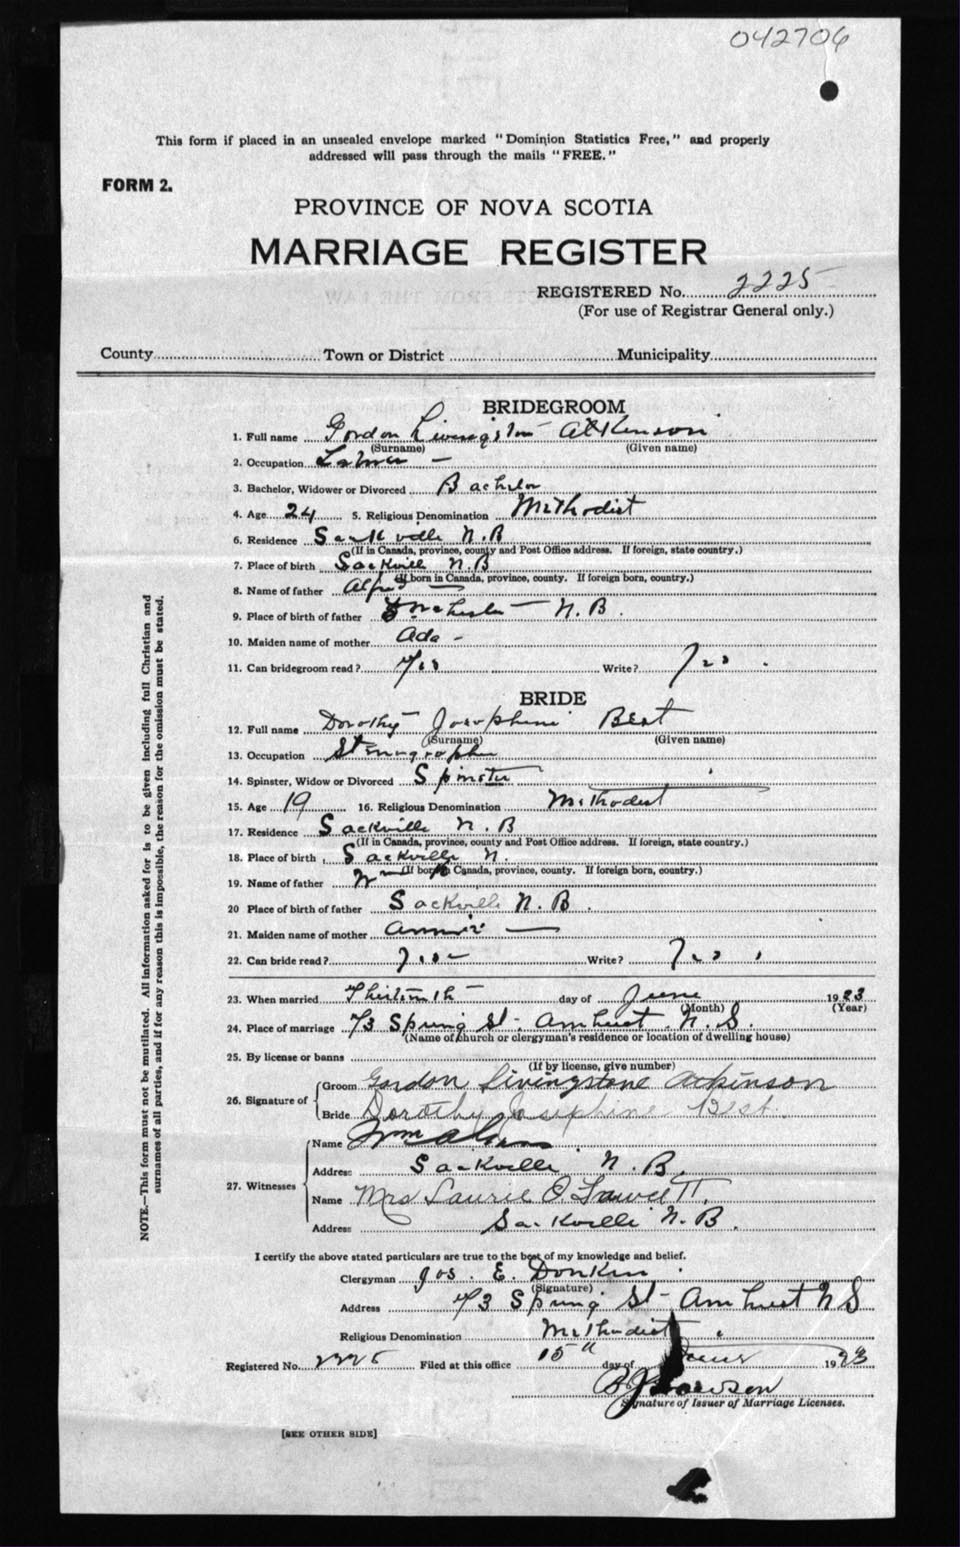 042706
This form if placed in an unsealed envelope marked "Dominion Statistics Free," and properly
addressed will pass through the mails "FREE."
FORM 2.
PROVINCE OF NOVA SCOTIA
MARRIAGE REGISTER
REGISTERED No. 2225
(For use of Registrar General only.)
County Town or District Municipality
BRIDEGROOM
1. Full name Gordon Livingston Atkinson
(Surname) (Given name)
2. Occupation
3. Bachelor, Widower or Divorced Bachelor
4. Age 24 5. Religious Denomination Methodist
6. Residence Sackville N.B
(If in Canada, province, county and Post Office address. If foreign, state country.)
7. Place of birth Sackville N.B
(If born in Canada, province, county. If foreign born, country.)
8. Name of father Alfred
9. Place of birth of father N.B.
10. Maiden name of mother Ada -
11. Can bridegroom read? Yes Write? Yes.
BRIDE
12. Full name Dorothy Josephine Best
(Surname) (Given name)
13. Occupation Stenographer
14. Spinster, Widow or Divorced Spinster
15. Age 19 16. Religious Denomination Methodist
17. Residence Sackville N.B
(If in Canada, province, county and Post Office address. If foreign, state country.)
18. Place of birth Sackville N.
(If born in Canada, province, county. If foreign born, country.)
19. Name of father Wm
20 Place of birth of father Sackville N.B.
21. Maiden name of mother Annie
22. Can bride read? Yes Write? Yes.
23. When married Thirteenth day of June 1923
(Month) (Year)
24. Place of marriage 73 Spring St. Amherst N.S.
(Name of church or clergyman's residence or location of dwelling house)
25. By license or banns
(If by license, give number)
26. Signature of
Groom Gordon Livingstone Atkinson
Bride Dorothy Josephine Best.
27. Witnesses
Name Wm
Address Sackville N.B.
Name Mrs Laurie O.
Address Sackville N.B.
I certify the above stated particulars are true to the best of my knowledge and belief.
Clergyman Jos. E. Donkin
(Signature)
Address 73 Spring St- Amherst N S
Religious Denomination Methodist.
Registered No. 2225 Filed at this office 15" day of June 1923
Signature of Issuer of Marriage Licenses.
[SEE OTHER SIDE]
NOTE.—This form must not be mutilated. All information asked for is to be given including full Christian and
surnames of all parties, and if for any reason this is impossible, the reason for the omission must be stated.